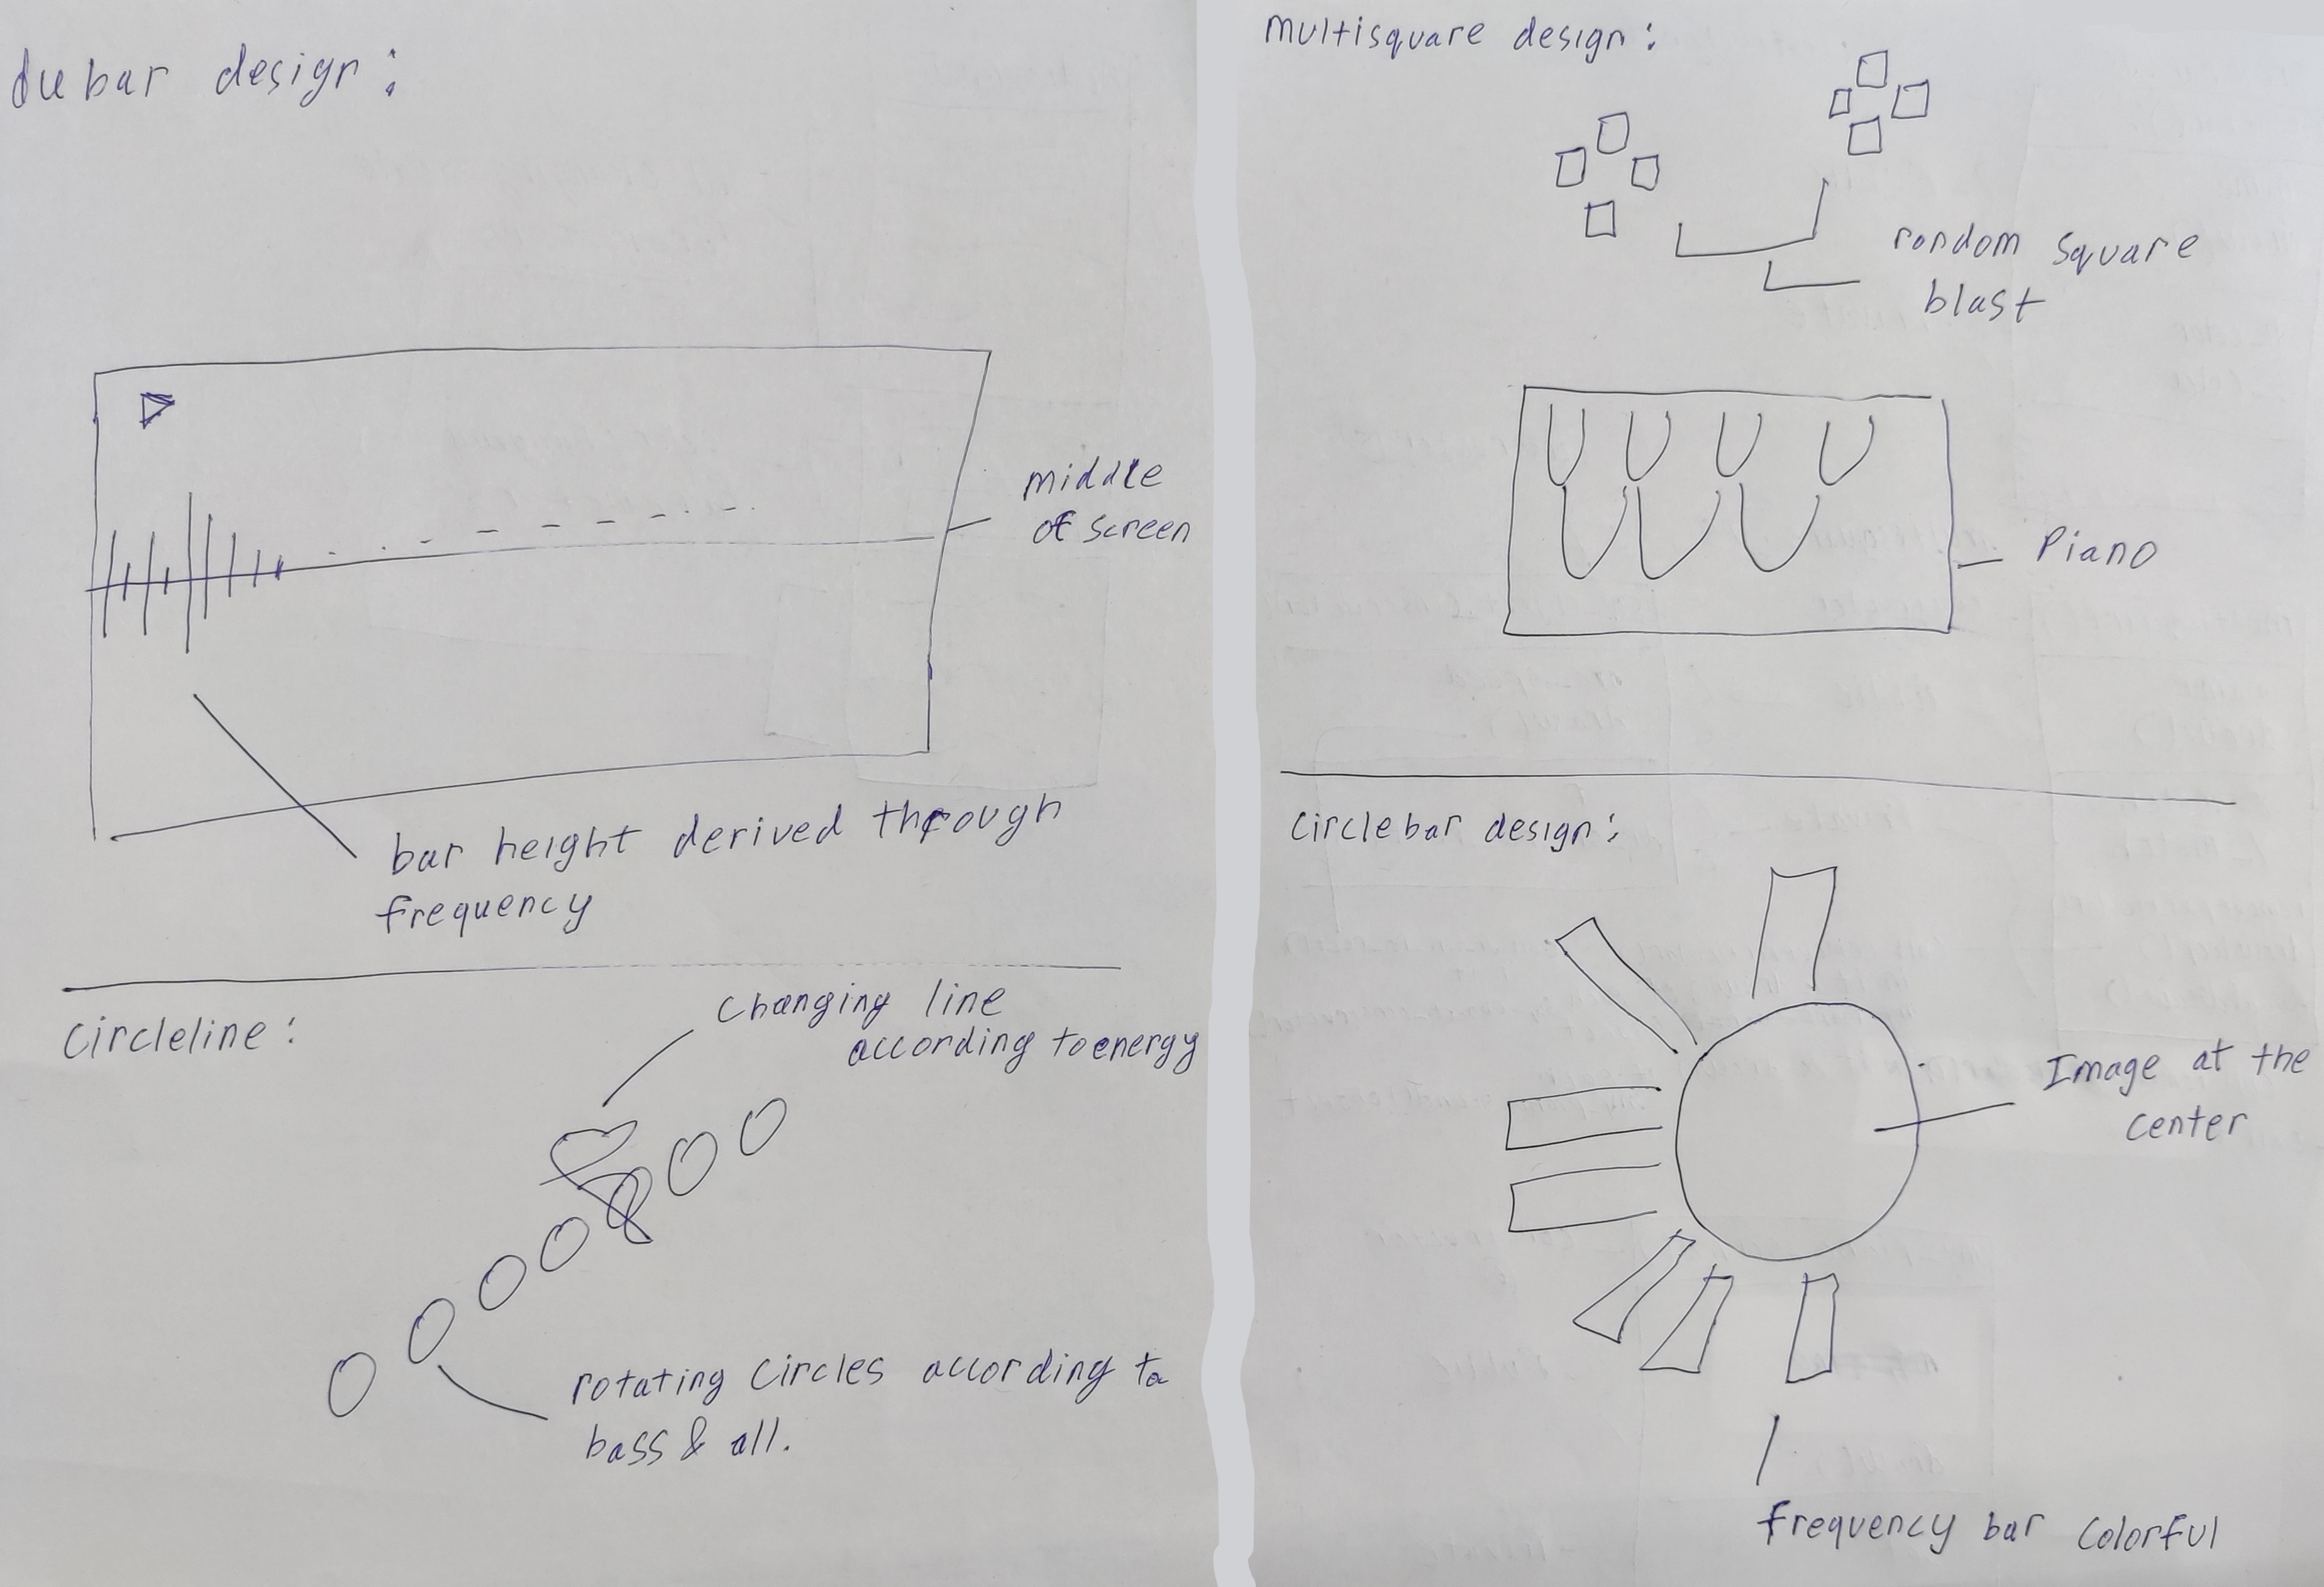 dubar design:
middle
of screen
bar height derived through
frequency
circleline:
Changing line
according to energy
rotating circles according to
bass & all.
multisquare design:
random square
blast
Piano
Circlebar design:
Image at the
center
frequency bar colorful